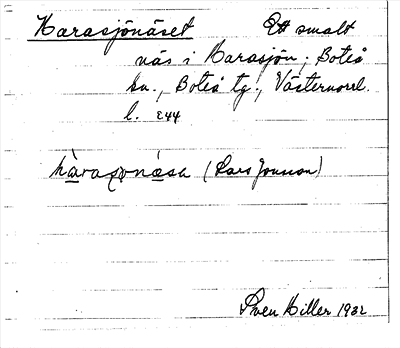 Harasjönäset Ett smalt
näs i Harasjön, Boteå
sn., Boteå tg., Västernorrl.
l. 244
hàrasǫnǽsa (Lars Jonsson)
Sven Hiller 1932